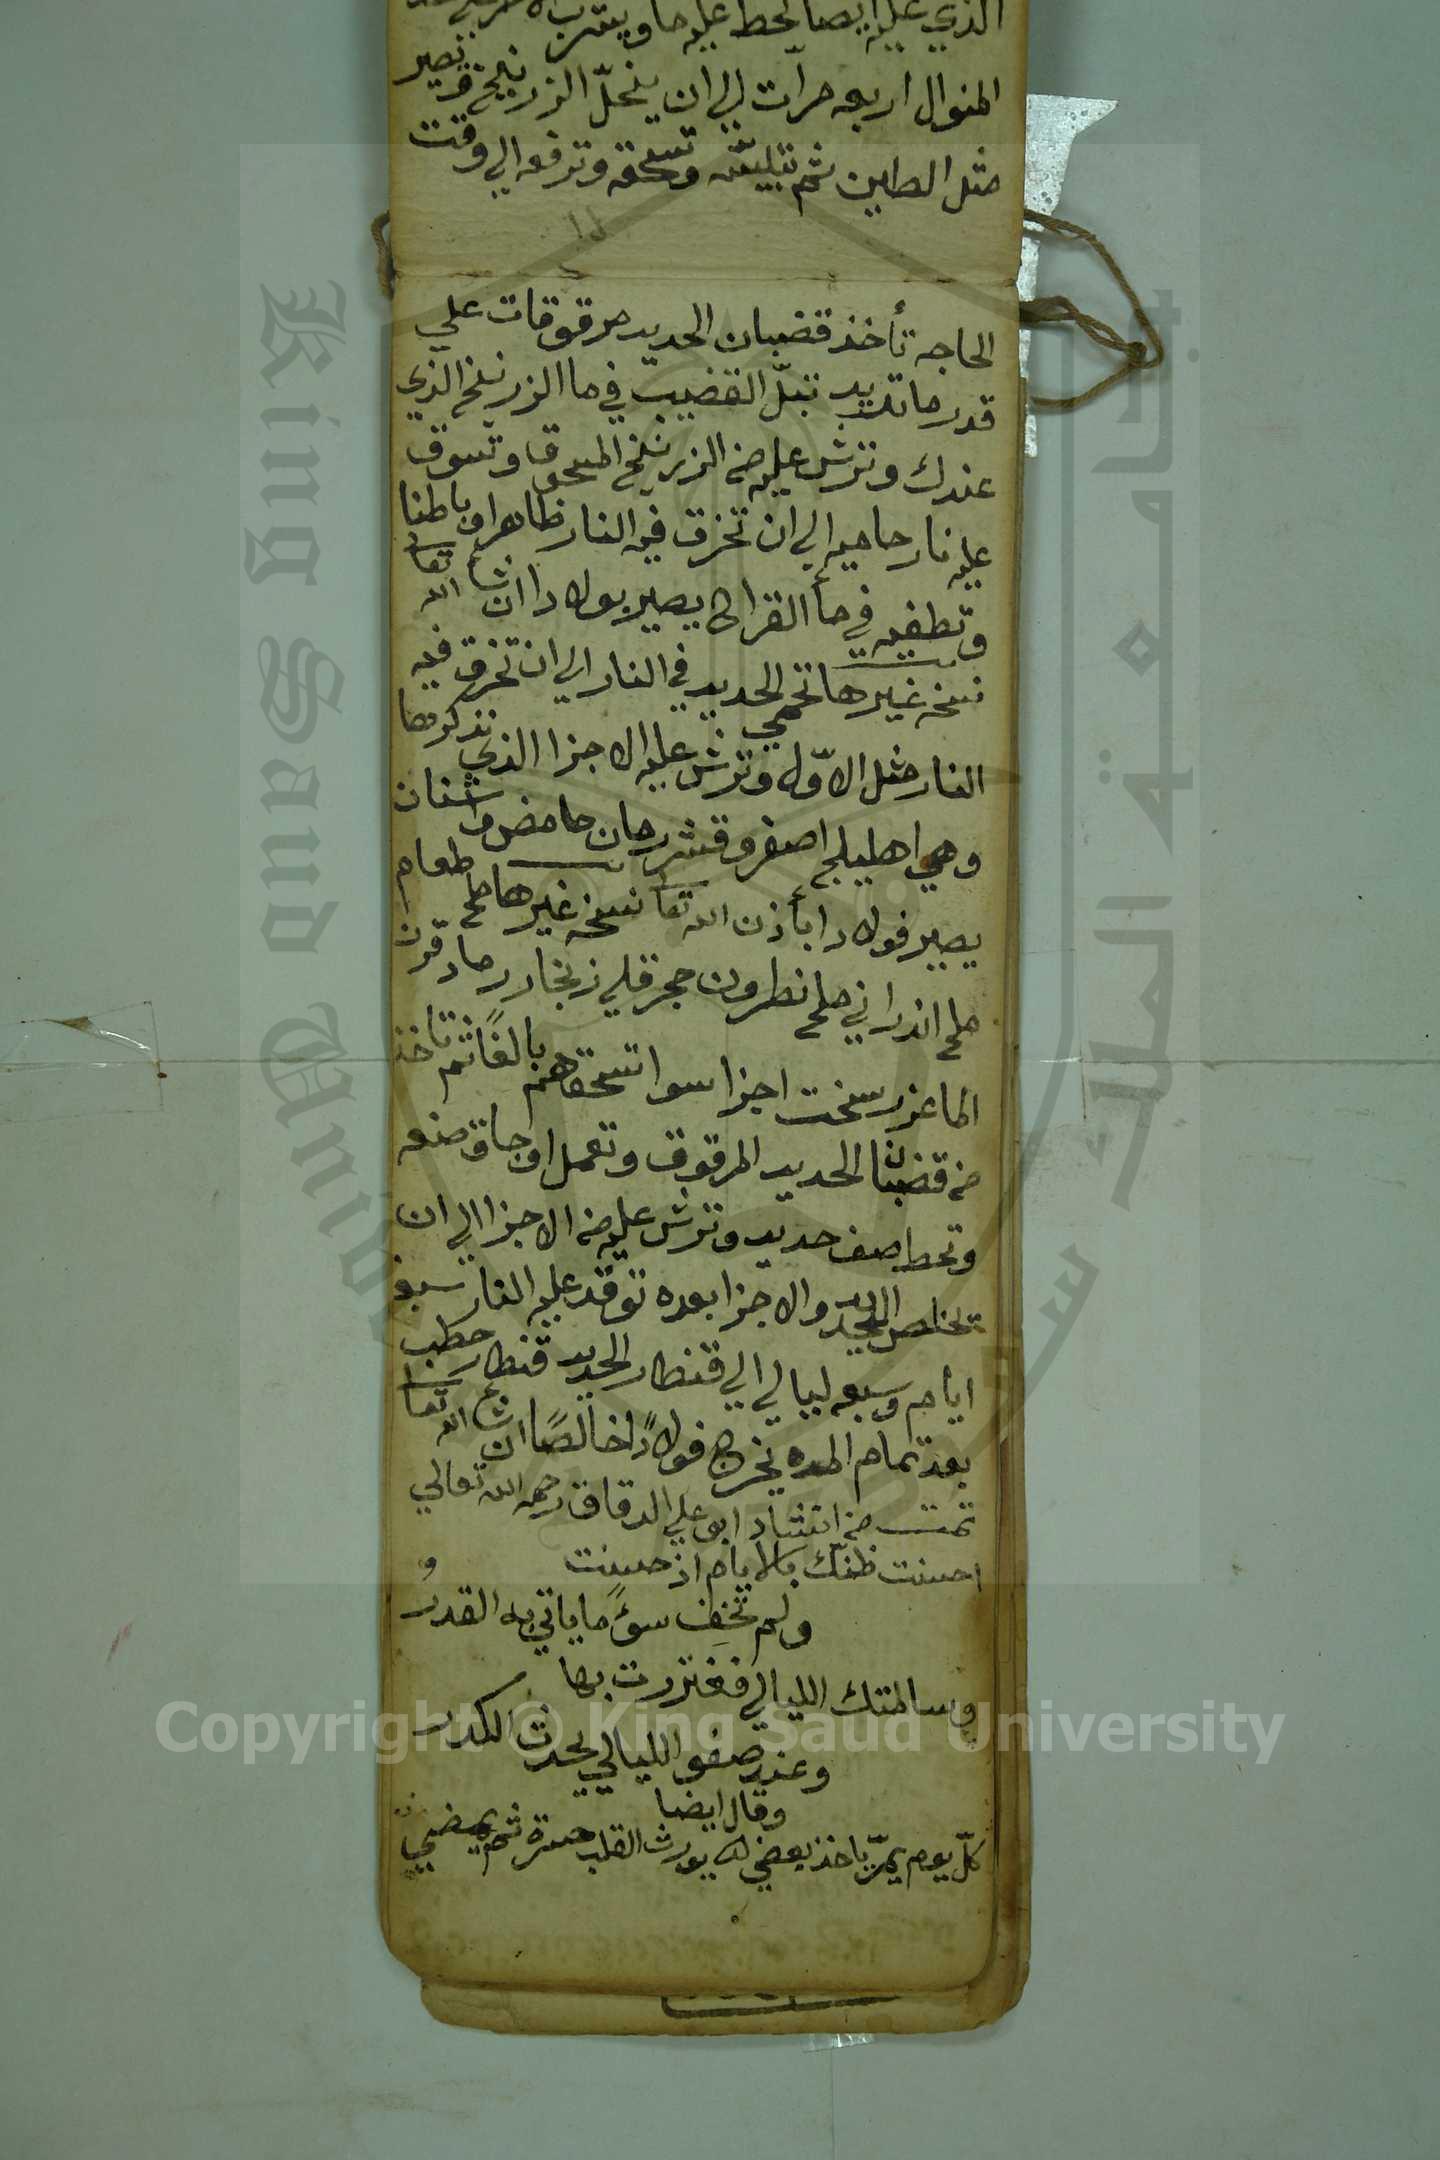 الذي عليه ايضا تحط عليه ما ويشرب
المنوال اربعه مرات الي ان ينحلّ الزرنيخ ويصير
مثل الطاين ثم تيبسه وتسحقه وترفعه الي وقت
الحاجه تأخذ قضبان الحديد مرقوقات علي
قدر ما تريد تبلّ القضيب في ما الزرنيخ الذي
عندك وترش عليه من الزرنيخ المسحوق وتسوق
عليه نار حاميه الي ان تخرق فيه النار ظاهرا وباطنا
وتطفيه في مأ القراح يصير بولادا ان شاء الله تعا
نسخه غيرها تحمي الحديد في النار الي ان تخرق فيه
النار مثل الاوّل وترش عليه الاجزا الذي نذكرها
وهي اهليلج اصفر وقشر رمان حامض واشنان
يصير فولادا بأذن الله تعا نسخه غيرها ملح طعام
ملح اندراني ملح نطرون حجر قلي زنجار رماد قرن
الماعز رسخت اجزا سوا تسحقهم بالغًا ثم تاخذ
من قضبان الحديد المرقوق وتعمل اوجاق صنعه
وتحط صف حديد وترش عليه من الاجزا الي ان
تخلص الحديد والاجزا بعده توقد عليه النار سبع
ايام وسبعه ليالي الي قنطار الحديد قنطار حطب
بعد تمام المده يخرج فولادًا خالصًا ان شاء الله تعا
تمت من انشاد ابو علي الدقاق رحمه الله تعالي
احسنت ظنّك بالايام اذ حسنت
ولم تخف سوءً ما ياتي به القدر و
وسالمتك الليالي فغتررت بها
وعند صفو الليالي يحدث الكدر
وقال ايضا
كلّ يوم يمرّ ياخذ بعضي له يورث القلب حسرة ثم يمضي